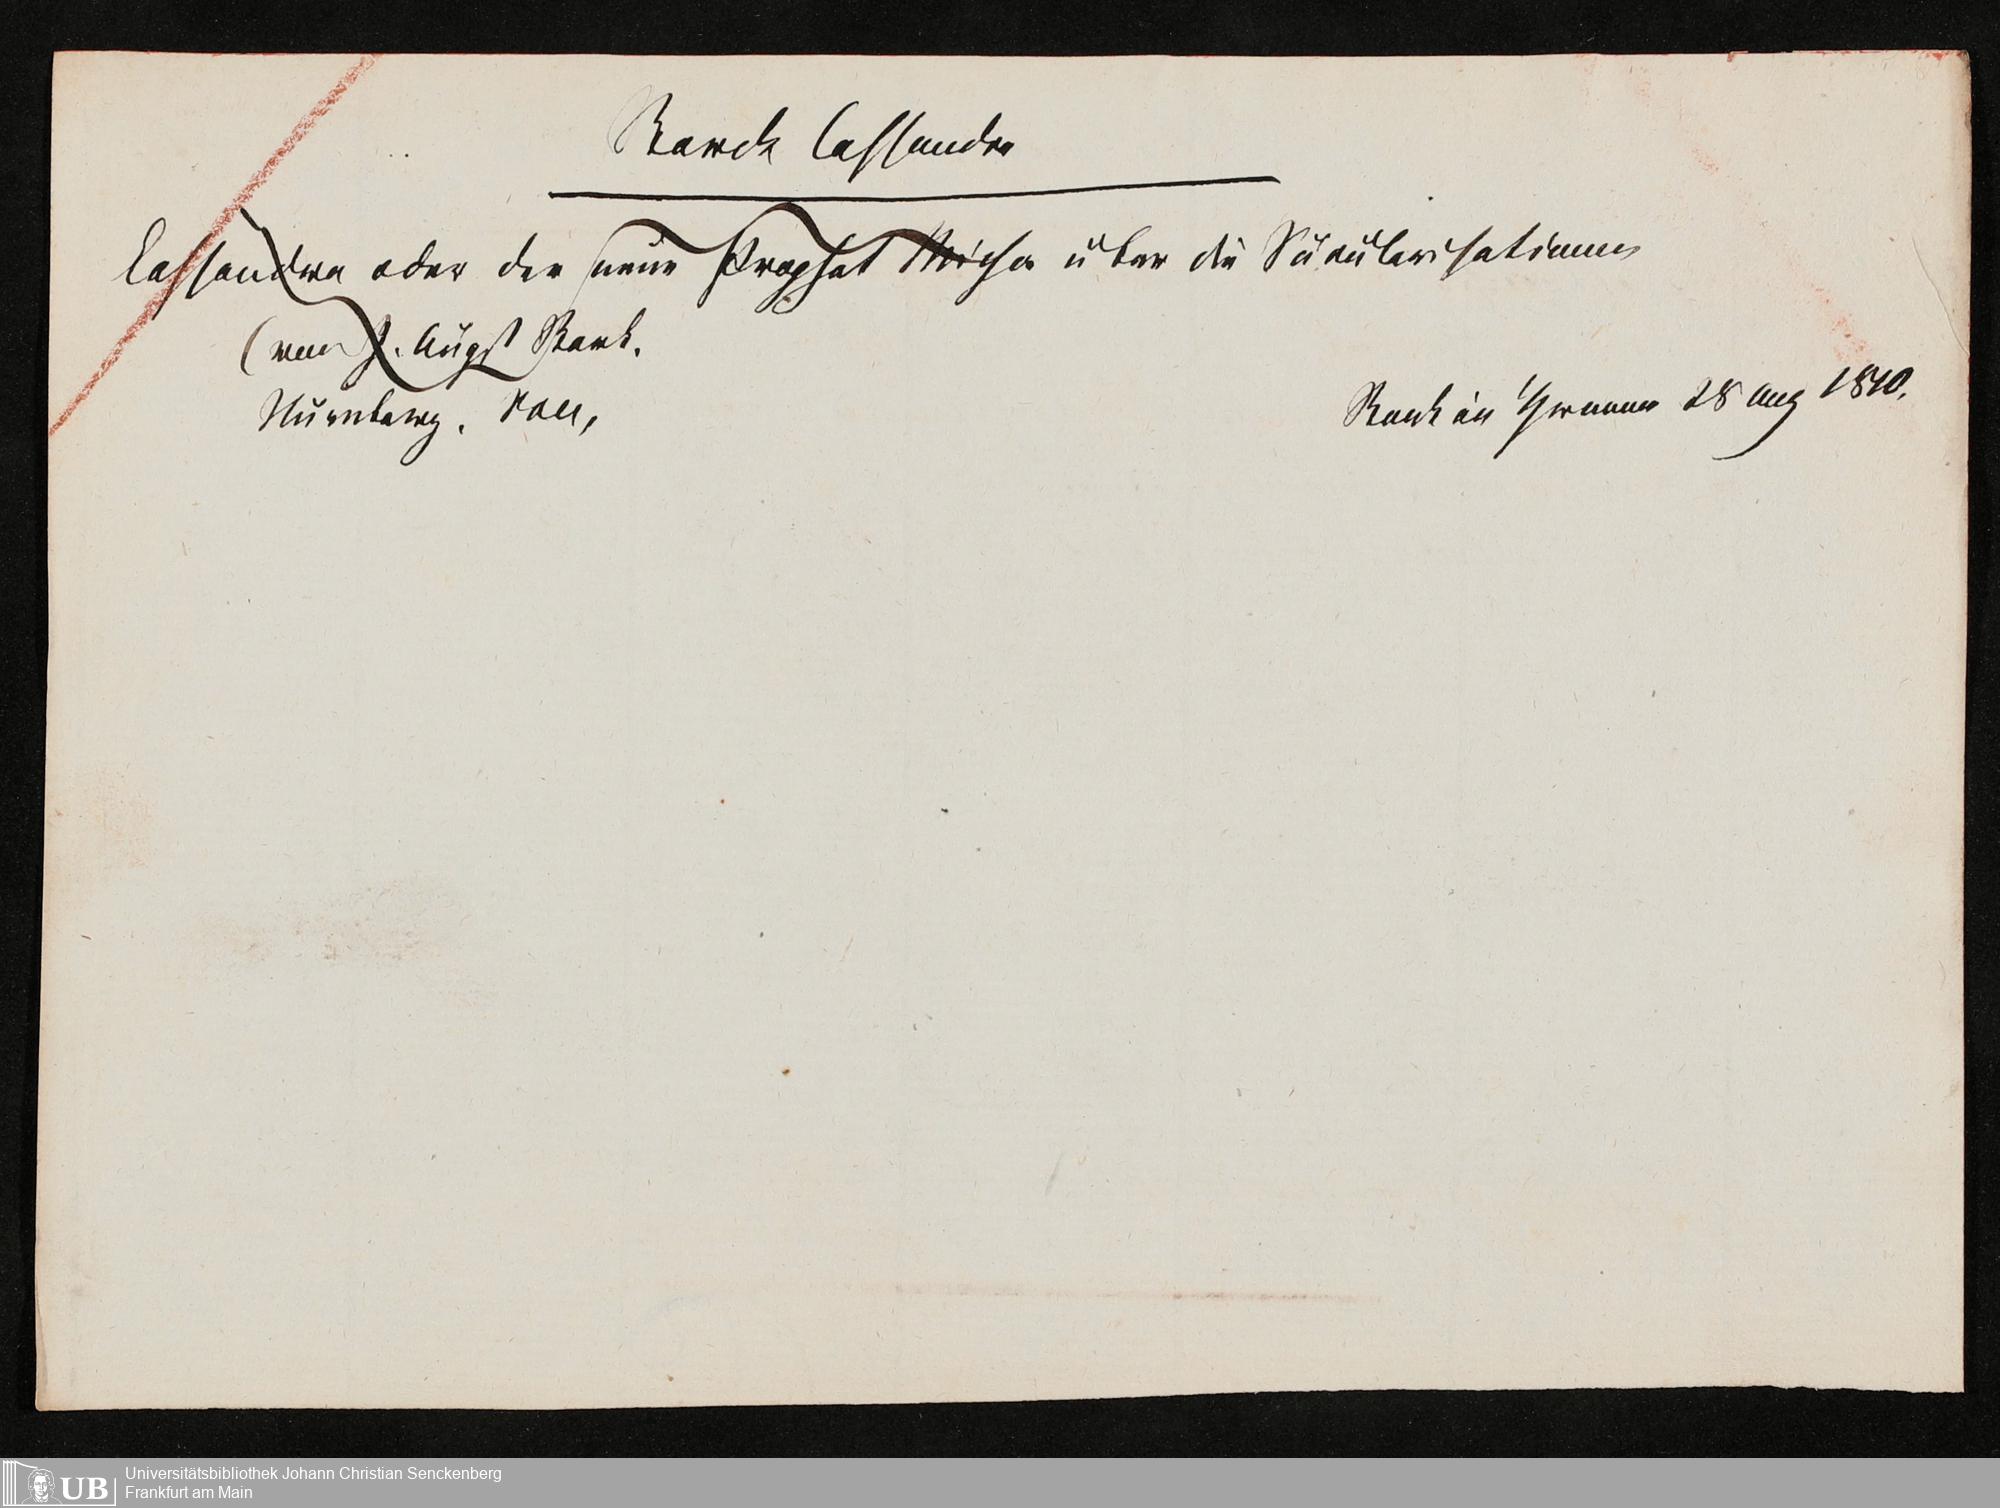 Starck Cassandra
Cassandra oder der neue Prophet Micha über die Säcularisationen
(von J. August Stark.
Nürnberg. 1811,
Stark in 28 Aug 1810.
Universitätsbibliothek Johann Christian Senckenberg
UB Frankfurt am Main